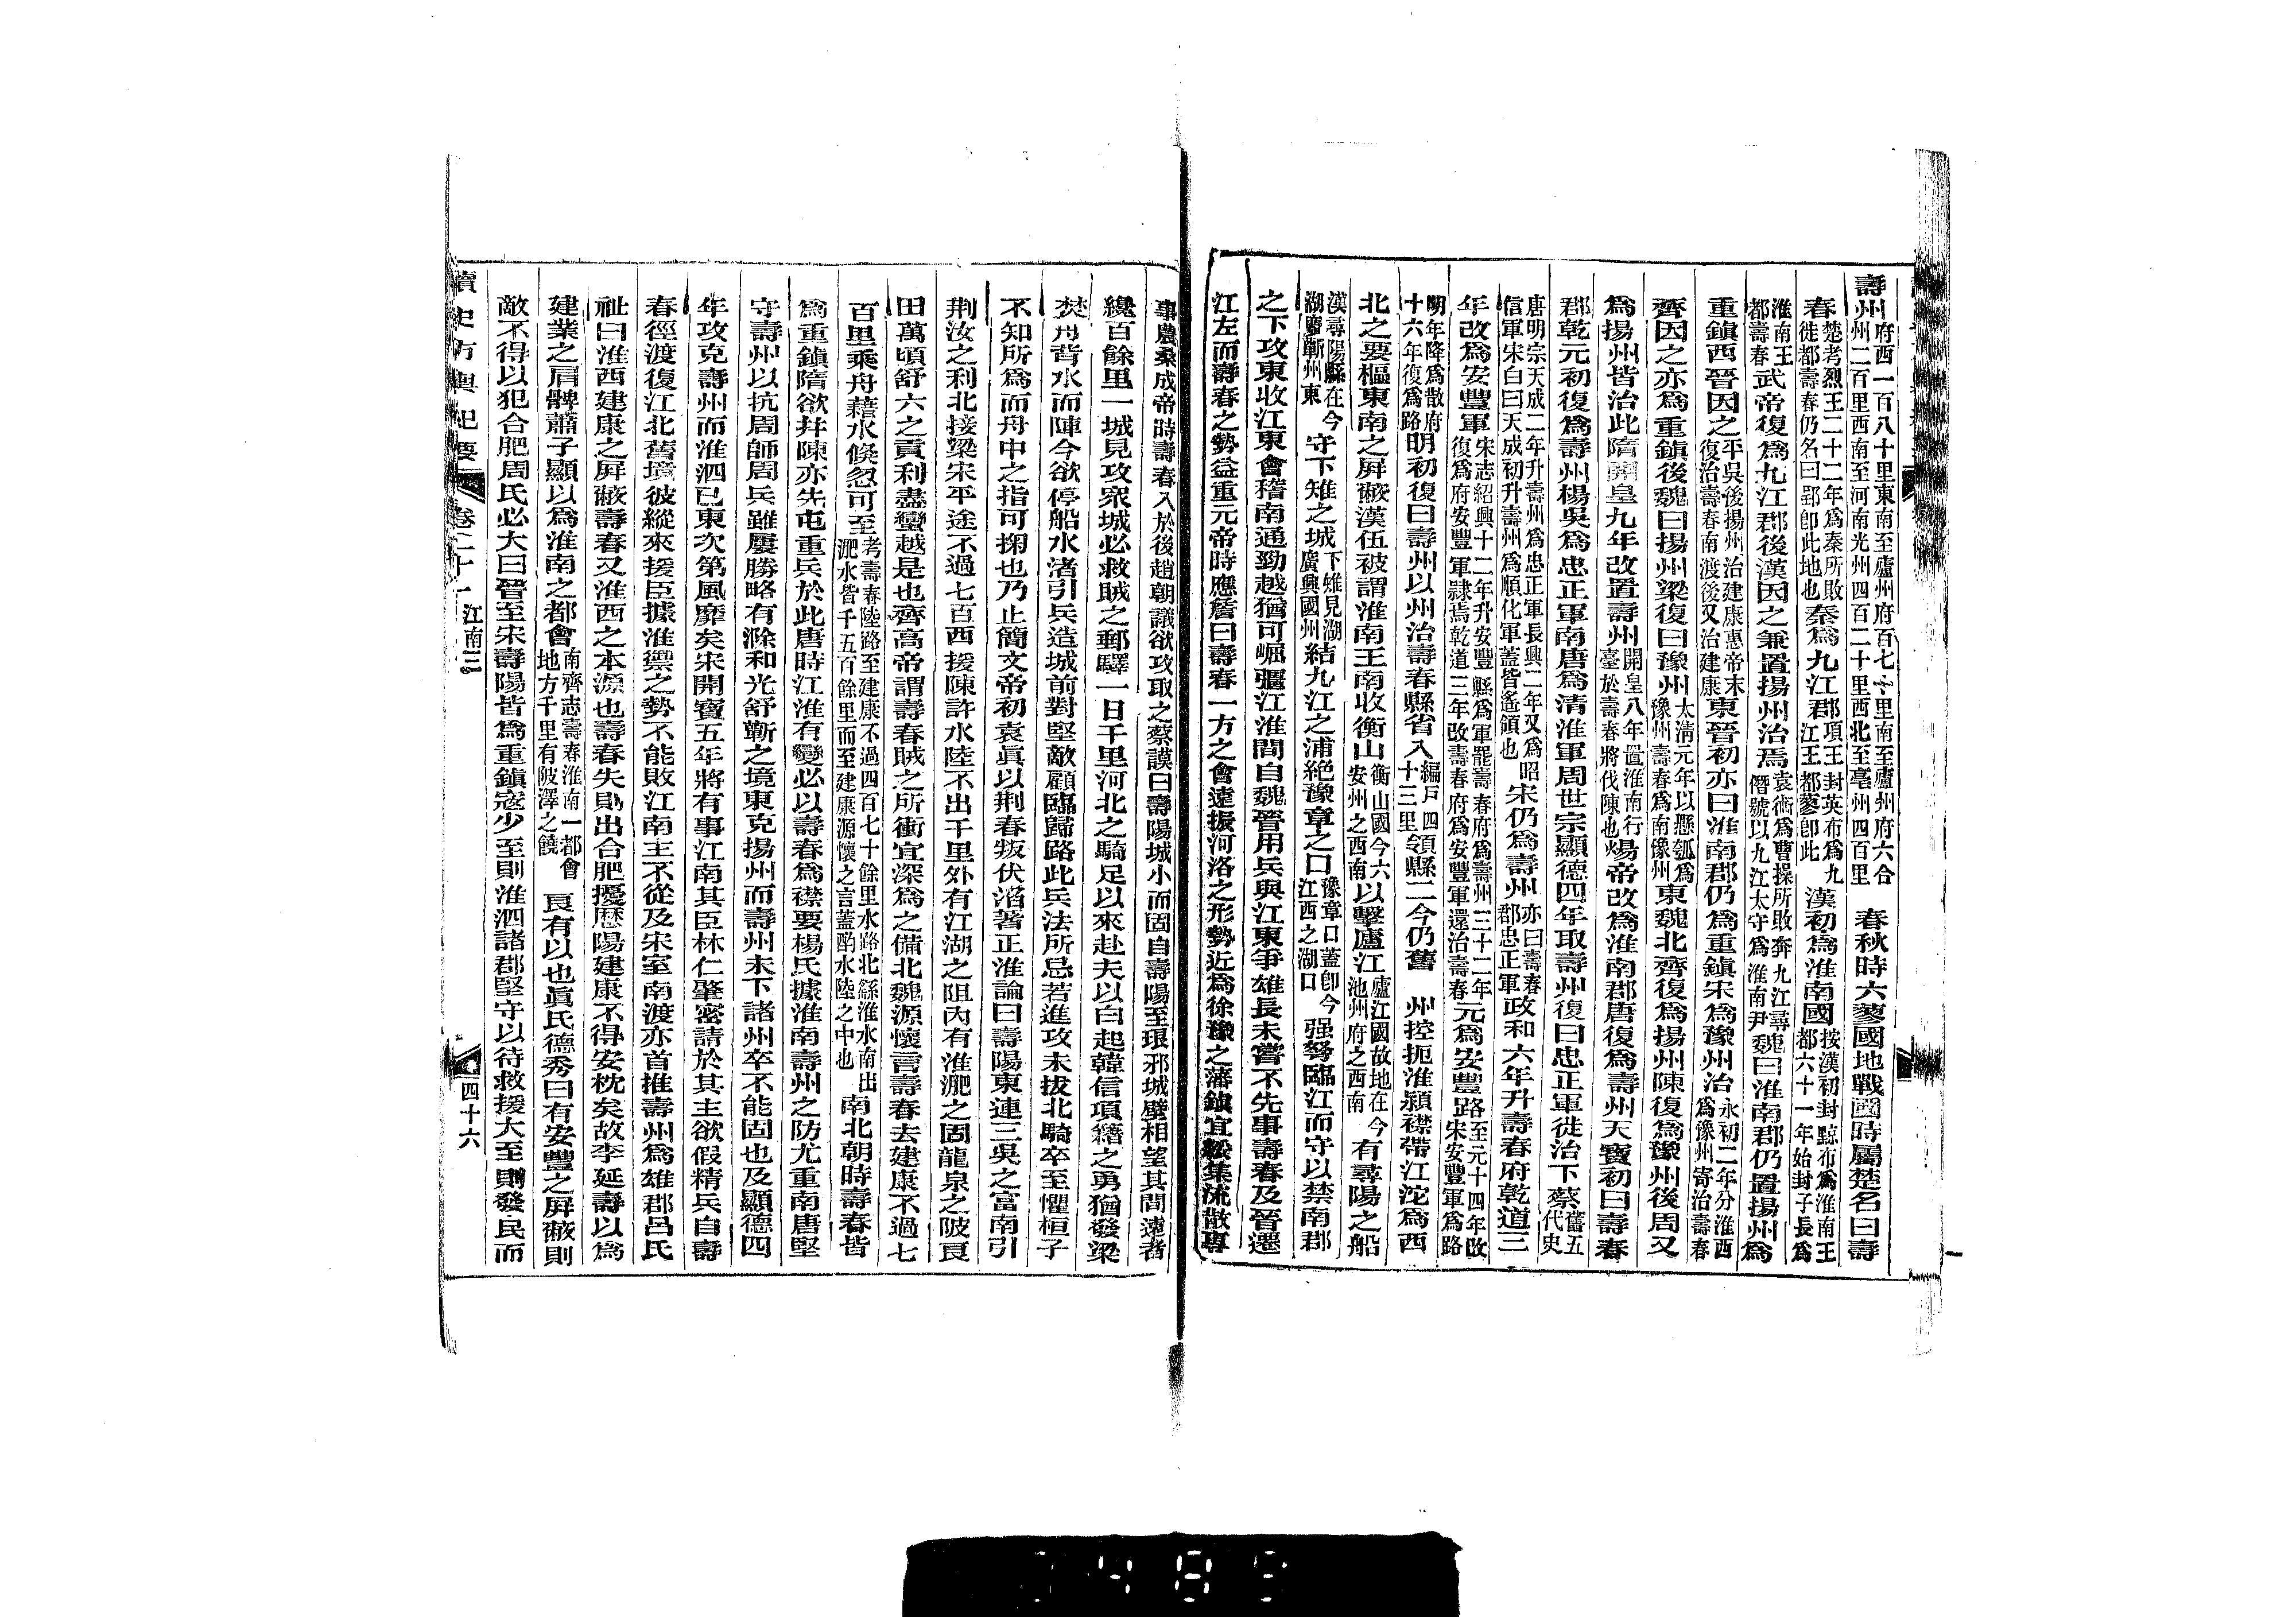 壽州府西一百八十里東南至廬州府百七十里南至廬州府六合
州二百里西南至河南光州四百二十里西北至亳州四百里春秋時六蓼國地戰國時屬楚名曰壽
春楚考烈王二十二年爲秦所敗
徙都壽春仍名曰郢卽此地也秦爲九江郡項王封英布爲九
江王都蓼卽此漢初爲淮南國按漢初封黥布爲淮南王
都六十一年始封子長爲
淮南王
都壽春武帝復爲九江郡後漢因之兼置揚州治焉袁術爲曹操所敗奔九江尋
僭號以九江太守爲淮南尹魏曰淮南郡仍置揚州爲
重鎮西晉因之平吳後揚州治建康惠帝末
復治壽春南渡後又治建康東晉初亦曰淮南郡仍爲重鎮宋爲豫州治永初二年分淮西
爲豫州寄治壽春
齊因之亦爲重鎮後魏曰揚州梁復曰豫州太淸元年以懸瓠爲
豫州壽春爲南豫州東魏北齊復爲揚州陳復爲豫州後周又
爲揚州皆治此隋開皇九年改置壽州開皇八年置淮南行
臺於壽春將伐陳也煬帝改爲淮南郡唐復爲壽州天寶初曰壽春
郡乾元初復爲壽州楊吳爲忠正軍南唐爲淸淮軍周世宗顯德四年取壽州復曰忠正軍徙治下蔡舊五
代史
唐明宗天成二年升壽州爲忠正軍長興二年又爲昭
信軍宋白曰天成初升壽州爲順化軍蓋皆遙領也宋仍爲壽州亦曰壽春
郡忠正軍政和六年升壽春府乾道三
年改爲安豐軍宋志紹興十二年升安豐縣爲軍罷壽春府爲壽州三十二年
復爲府安豐軍隸焉乾道三年改壽春府爲安豐軍還治壽春元爲安豐路至元十四年改
宋安豐軍爲路
明年降爲散府
十六年復爲路明初復曰壽州以州治壽春縣省入編戶四
十三里領縣二今仍舊　州控扼淮潁襟帶江沱爲西
北之要樞東南之屏蔽漢伍被謂淮南王南收衡山衡山國今六
安州之西南以擊廬江廬江國故地在今
池州府之西南有尋陽之船
漢尋陽縣在今
湖廣蘄州東守下雉之城下雉見湖
廣興國州結九江之浦絶豫章之口豫章口蓋卽今
江西之湖口强弩臨江而守以禁南郡
之下攻東收江東會稽南通勁越猶可崛彊江淮間自魏晉用兵與江東爭雄長未嘗不先事壽春及晉遷
江左而壽春之勢益重元帝時應詹曰壽春一方之會遠振河洛之形勢近爲徐豫之藩鎮宜綏集流散專
事農桑成帝時壽春入於後趙朝議欲攻取之蔡謨曰壽陽城小而固自壽陽至琅邪城壁相望其間遠者
纔百餘里一城見攻衆城必救賊之郵驛一日千里河北之騎足以來赴夫以白起韓信項籍之勇猶發梁
焚舟背水而陣今欲停船水渚引兵造城前對堅敵顧臨歸路此兵法所忌若進攻未拔北騎卒至懼桓子
不知所爲而舟中之指可掬也乃止簡文帝初袁眞以荆春叛伏滔著正淮論曰壽陽東連三吳之富南引
荆汝之利北接梁宋平途不過七百西援陳許水陸不出千里外有江湖之阻內有淮淝之固龍泉之陂良
田萬頃舒六之貢利盡蠻越是也齊高帝謂壽春賊之所衝宜深爲之備北魏源懷言壽春去建康不過七
百里乘舟藉水倐忽可至考壽春陸路至建康不過四百七十餘里水路北繇淮水南出
淝水皆千五百餘里而至建康源懷之言蓋酌水陸之中也南北朝時壽春皆
爲重鎮隋欲幷陳亦先屯重兵於此唐時江淮有變必以壽春爲襟要楊氏據淮南壽州之防尤重南唐堅
守壽州以抗周師周兵雖屢勝略有滁和光舒蘄之境東克揚州而壽州未下諸州卒不能固也及顯德四
年攻克壽州而淮泗已東次第風靡矣宋開寶五年將有事江南其臣林仁肇密請於其主欲假精兵自壽
春徑渡復江北舊境彼縱來援臣據淮禦之勢不能敗江南主不從及宋室南渡亦首推壽州爲雄郡呂氏
祉曰淮西建康之屏蔽壽春又淮西之本源也壽春失則出合肥擾歷陽建康不得安枕矣故李延壽以爲
建業之肩髀蕭子顯以爲淮南之都會南齊志壽春淮南一都會
地方千里有陂澤之饒良有以也眞氏德秀曰有安豐之屏蔽則
敵不得以犯合肥周氏必大曰晉至宋壽陽皆爲重鎮寇少至則淮泗諸郡堅守以待救援大至則發民而
讀史方輿紀要　卷二十一　江南三　四十六